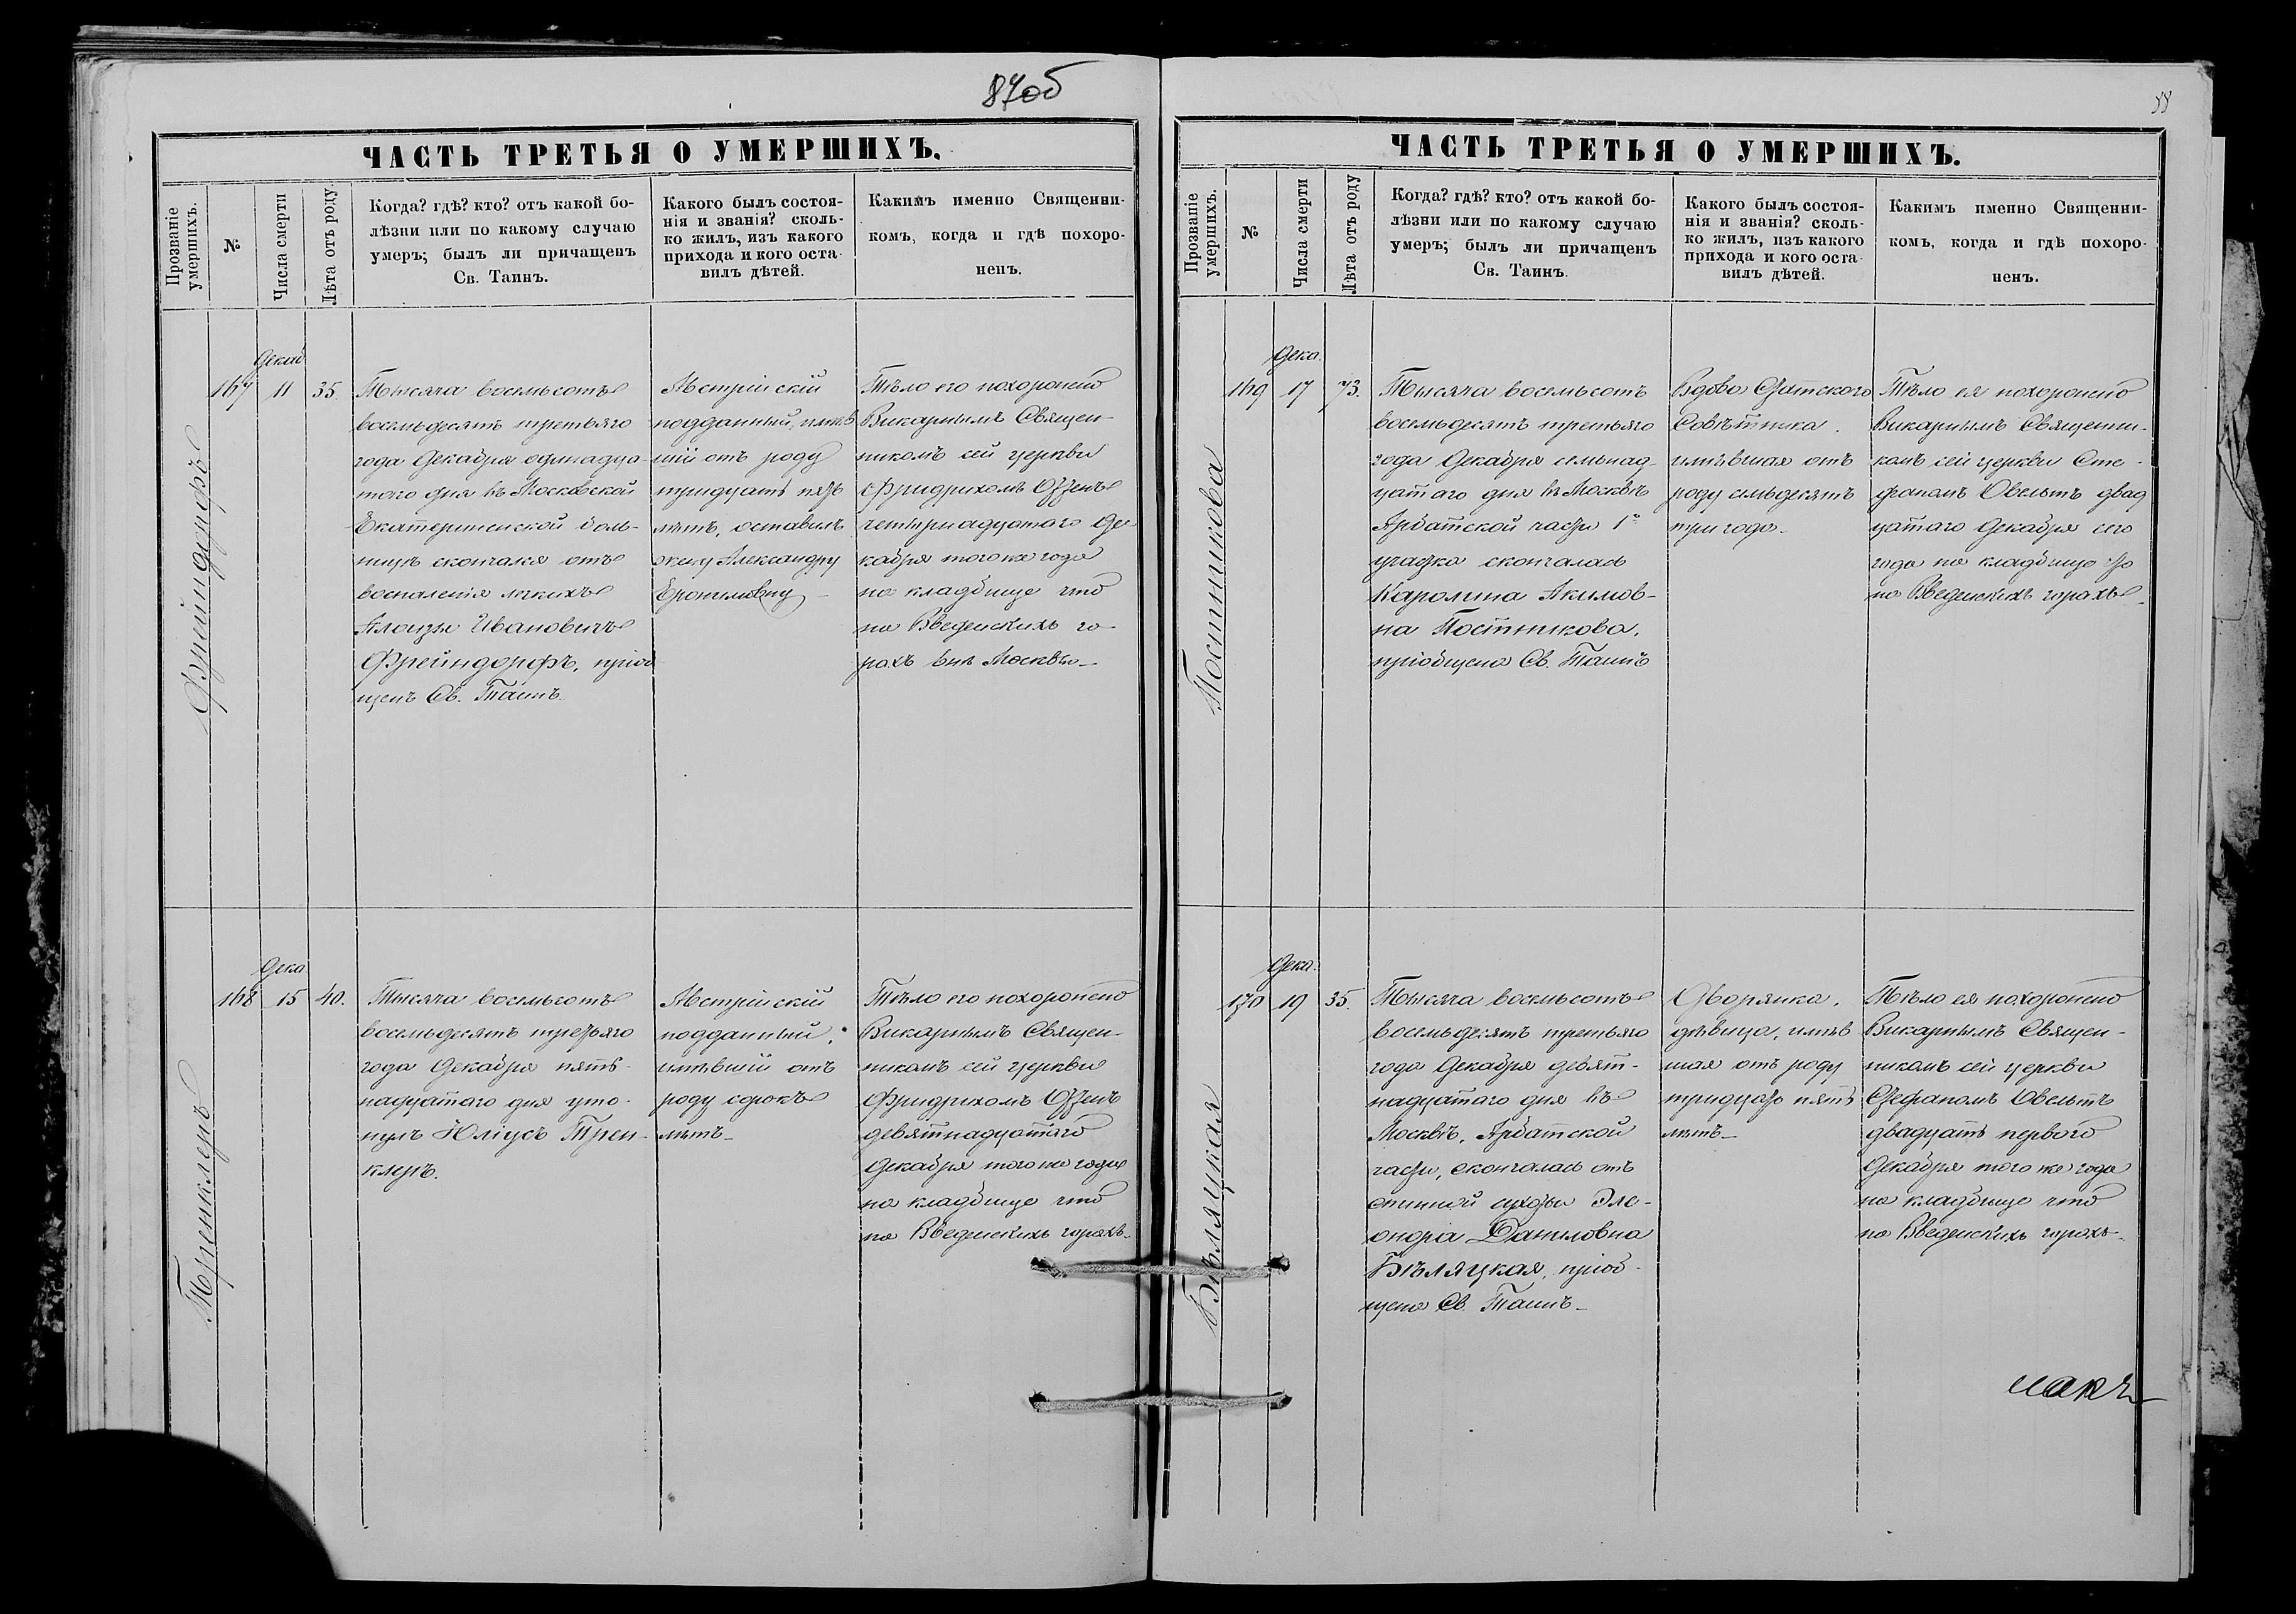 87об
ЧАСТЬ ТРЕТЬЯ О УМЕРШИХЪ.
Прозваніе
умершихъ.
№
Числа смерти
Лѣта отъ роду
Когда? гдѣ? кто? отъ какой бо-
лѣзни или по какому случаю
умеръ; былъ ли причащенъ
Св. Таинъ.
Какого былъ состоя-
нія и званія? сколь-
ко жилъ, изъ какого
прихода и кого оста-
вилъ дѣтей.
Какимъ именно Священни-
комъ, когда и гдѣ похоро-
ненъ.
Фрейндорфъ
Декаб
167
11
35.
Тысяча восемьсотъ
восемьдесятъ третьяго
года Декабря одинадца-
таго дня въ Московской
Екатерининской боль-
ницѣ скончался отъ
воспаленія легкихъ
Алоизъ Ивановичъ
Фрейндорфъ, пріоб
щенъ Св. Таинъ.
Австрійскій
подданный, имѣв
шій отъ роду
тридцать пять
лѣтъ, оставилъ
жену Александру
Ерофиловну
Тѣло его похоронено
Викарнымъ Священ-
никомъ сей церкви
Фридрихомъ Оззенъ
четырнадцатаго Де
кабря того же года
на кладбище что
на Введенскихъ го-
рахъ внѣ Москвы
Тренклеръ
Дека
168
15
40.
Тысяча восемьсотъ
восемьдесятъ третьяго
года Декабря пять-
надцатаго дня уто-
нулъ Юліусъ Трен-
клеръ.
Австрійскій
подданный,
имѣвшій отъ
роду сорокъ
лѣтъ
Тѣло его похоронено
Викарнымъ Священ-
никомъ сей церкви
Фридрихомъ Оззенъ
девятнадцатаго
Декабря того же года
на кладбище что
на Введенскихъ горахъ
88
ЧАСТЬ ТРЕТЬЯ О УМЕРШИХЪ.
Прозваніе
умершихъ.
№
Числа смерти
Лѣта отъ роду
Когда? гдѣ? кто? отъ какой бо-
лѣзни или по какому случаю
умеръ; былъ ли причащенъ
Св. Таинъ.
Какого былъ состоя-
нія и званія? сколь-
ко жилъ, изъ какого
прихода и кого оста-
вилъ дѣтей.
Какимъ именно Священни-
комъ, когда и гдѣ похоро-
ненъ.
Постникова
Дека.
169
17
73.
Тысяча восемьсотъ
восемьдесятъ третьяго
года Декабря семьнад-
цатаго дня въ Москвѣ
Арбатской части 1го
участка скончалась
Каролина Акимов-
на Постникова,
пріобщена Св. Таинъ
Вдова Статского
Совѣтника,
имѣвшая отъ
роду семьдесятъ
три года
Тѣло ея похоронено
Викарнымъ Священни-
комъ сей церкви Сте-
фаномъ Овельтъ двад
цатаго Декабря сего
года на кладбище что
на Введенскихъ горахъ
Бѣляцкая
Дека.
170
19
35.
Тысяча восемьсотъ
восемьдесятъ третьяго
года Декабря девят-
надцатаго дня въ
Москвѣ, Арбатской
части, скончалась отъ
спинной сухотки Эле-
онора Даниловна
Бѣляцкая, пріоб-
щена Св. Таинъ
Дворянка,
дѣвица, имѣв
шая отъ роду
тридцать пять
лѣтъ
Тѣло ея похоронено
Викарнымъ Священ-
никомъ сей церкви
Стефаномъ Овельтъ
двадцать перваго
Декабря того же года
на кладбище что
на Введенскихъ горахъ